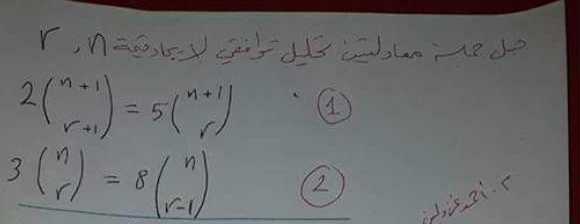 حل جملة معادلتين تحليل توافقي لايجاد قيمة r , n
2(n+1 r+1) = 5(n+1 r) ①
3(n r) = 8(n r-1) ②
م. أحمد